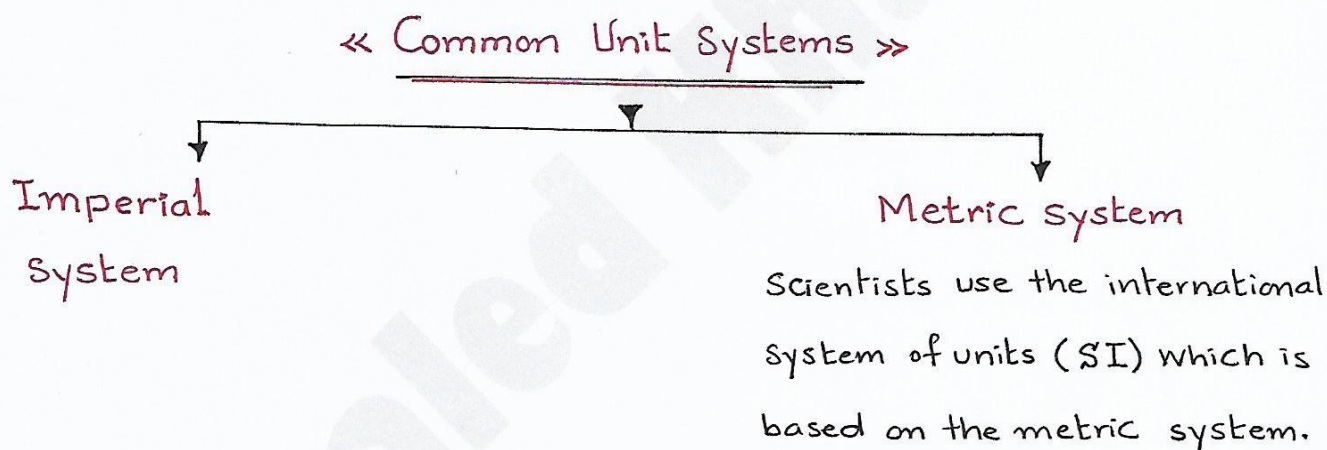 « Common Unit Systems »
Imperial
System
Metric System
Scientists use the international
system of units (SI) which is
based on the metric system.